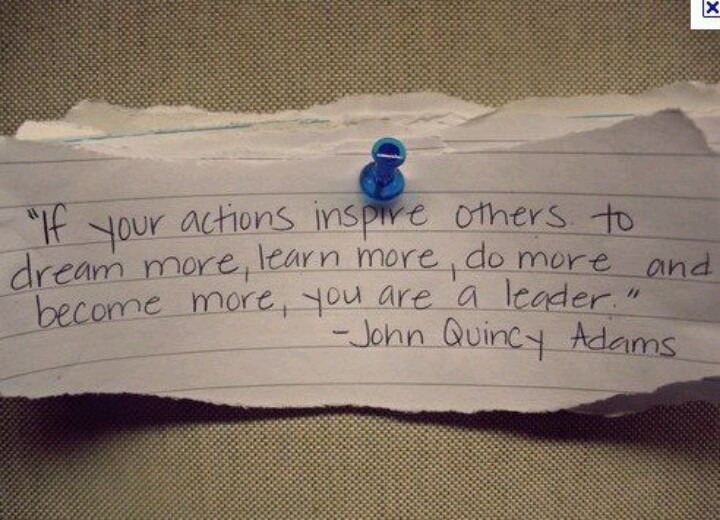 "If your actions inspire others to
dream more, learn more, do more and
become more, you are a leader."
-John Quincy Adams